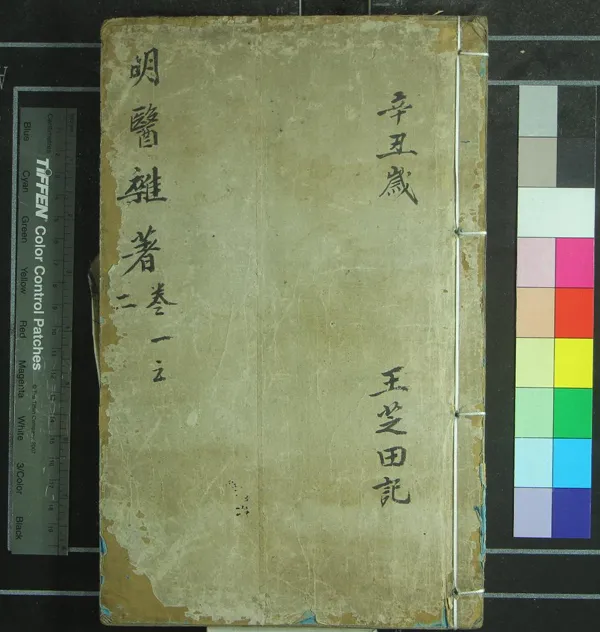 辛丑歲
王芝田記
明醫雜著
卷一之
二
TIFFEN Color Control Patches
Blue Cyan Green Yellow Red Magenta White 3/Color Black